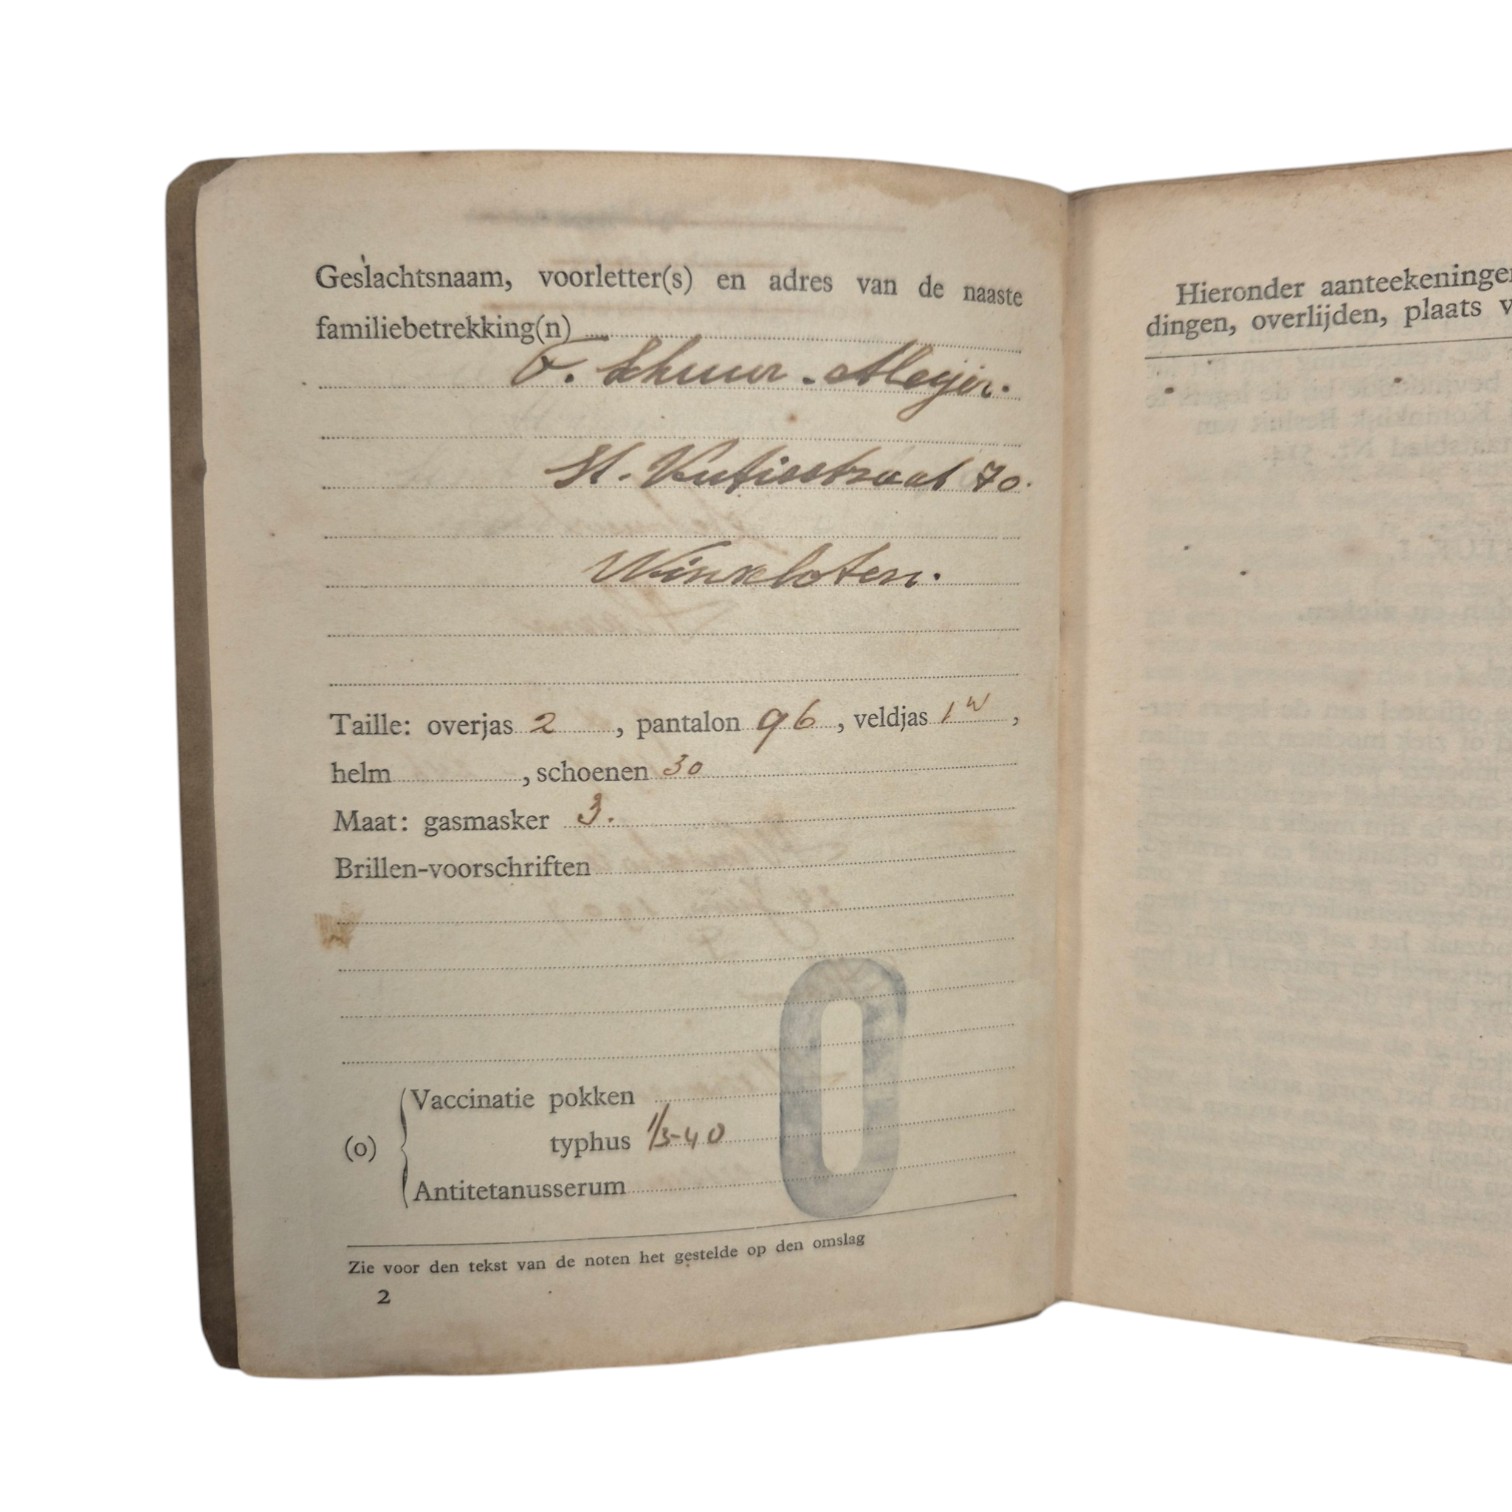 Geslachtsnaam, voorletter(s) en adres van de naaste
familiebetrekking(n)
Schuur - Meijer.
St. Vitusstraat 70.
Winschoten.
Taille: overjas 2, pantalon 96, veldjas 1 w,
helm, schoenen 30
Maat: gasmasker 3.
Brillen-voorschriften
O
Vaccinatie pokken
(o) typhus 1/5-40
Antitetanusserum
Zie voor den tekst van de noten het gestelde op den omslag
2
Hieronder aanteekeningen
dingen, overlijden, plaats v